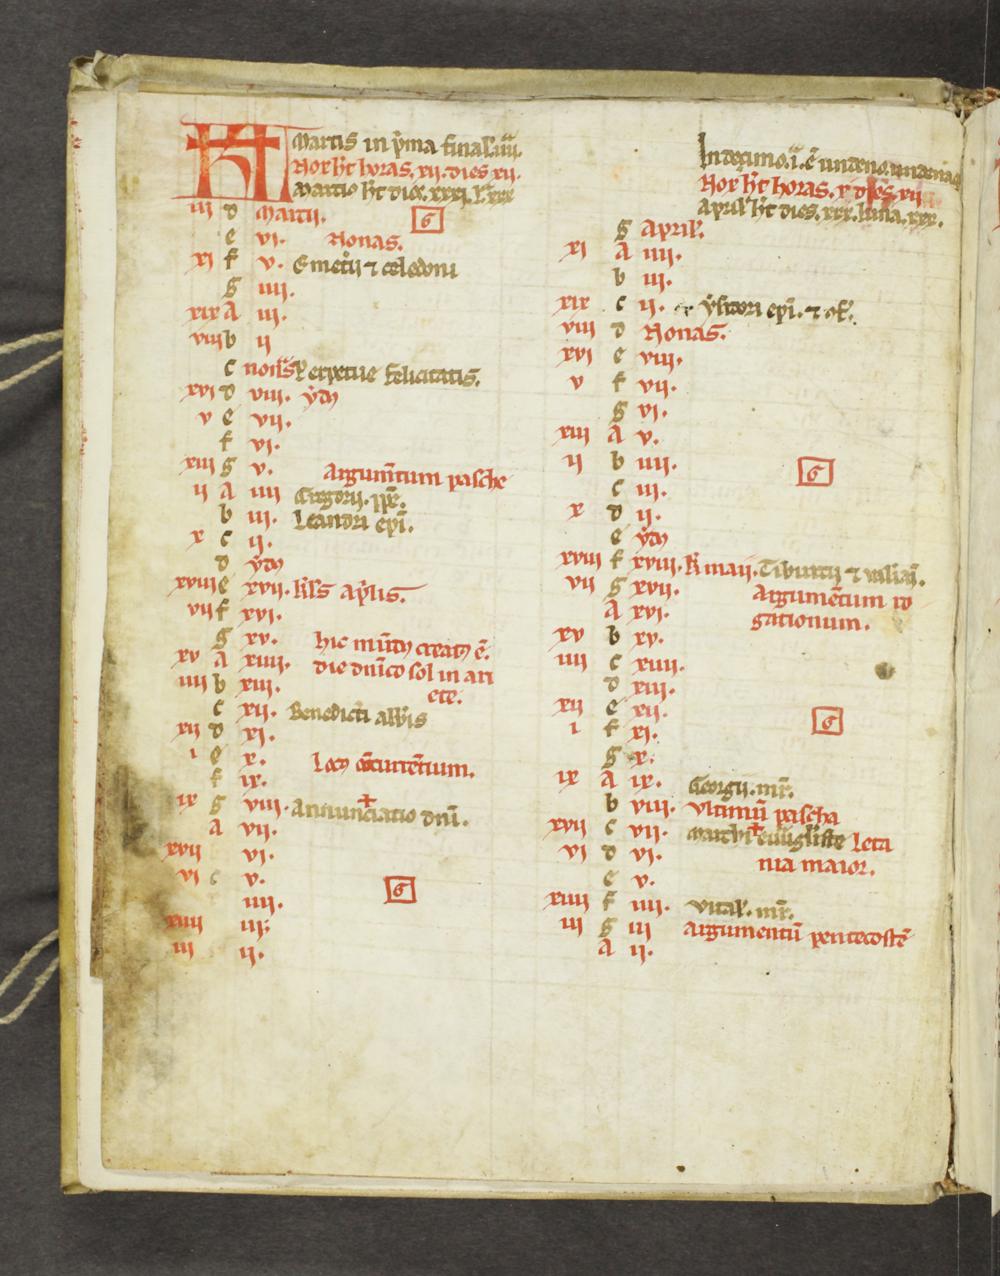 KL Martis in p̄ma final. iiii.
Nox h̄t horas. xii. dies xii.
Martio h̄t dies. xxxi. l. xxx
iii d Martii. 6
e vi. Nonas.
xi f v. Emet'ii ⁊ celedoni
g iiii.
xix A iii.
viii b ii
c non̄s Perpetue felicitatis.
xvi d viii. ydꝰ
v e vii.
f vi.
xiii g v. Argum̄tum pasche
ii A iiii Gregorii. pp̄.
b iii. Leandri ep̄i.
x c ii.
d ydꝰ
xviii e xvii. kl̄s ap̄lis.
vii f xvi.
g xv. hic mūdꝰ creatꝰ ē.
xv A xiiii. die dn̄ico sol in ari
iiii b xiii. ete.
c xii. Benedicti abb̄is
xii d xi.
i e x. Locꝰ ↄcurrētium.
f ix.
ix g viii. Annunciatio dn̄i.
a vii.
xvii vi.
vi c v. 6
iiii.
xiiii iii.
iii ii.
In decimo. i. ē undeno.
Nox h̄t horas. x dies. xii
April' h̄t dies. xxx. luna. xxx.
g April'.
xi A iiii.
b iii.
xix c ii. ysidori ep̄i. ⁊ ɔf.
viii d Nonas.
xvi e viii.
v f vii.
g vi.
xiii A v.
ii b iiii. 6
c iii.
x d ii.
e ydꝰ
xviii f xviii. kl maii. Tiburtii ⁊ valiāi.
vii g xvii. Argumētum ro
A xvi. gationum.
xv b xv.
iiii c xiiii.
d xiii.
xii e xii. 6
i f xi.
g x.
ix A ix. Georgii. mr̄.
b viii. Vltimū pascha
xvii c vii. Marchi euāgliste Leta
vi d vi. nia maior.
e v.
xiiii f iiii. Vital'. mr̄.
iii g iii Argumentū pentecostē
A ii.